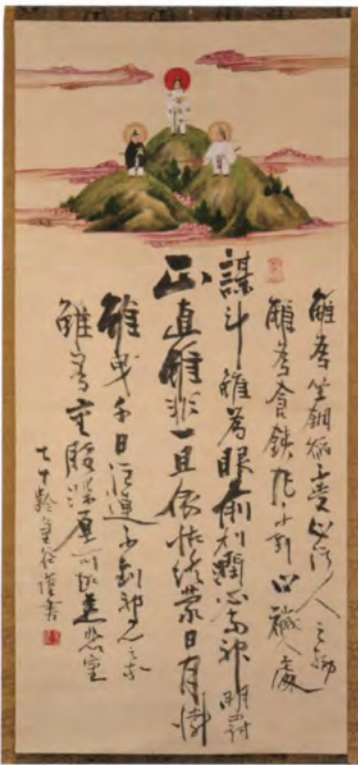 雖為坐銅焔不受心汚人之物
雖為食鉄丸不到心穢人處
謀計雖為眼前利潤必当神明罰
正直雖非一旦依怙終蒙日月憐
雖曳千日注連不到邪見之家
雖為重服深厚可赴慈悲室
七十齢 謹書